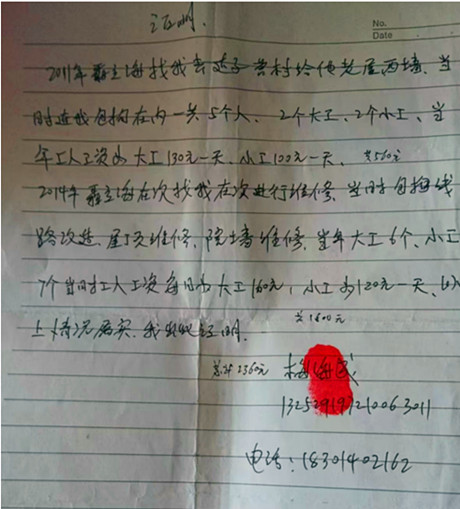 证明.
No.
Date
2011年聂立海找我去达子营村给他老屋西墙、当
时连我包括在内一共5个人、2个大工、2个小工、当
年工人工资为大工130元一天、小工100元一天、共560元
2014年聂立海在次找我在次进行维修、当时包括线
路改造、屋顶维修、院墙维修、当年大工6个、小工
7个当时工人工资每日为大工160元，小工为120元一天、以
上情况属实、我
证明.
共1800元
总计2360元
海
电话：18301402162